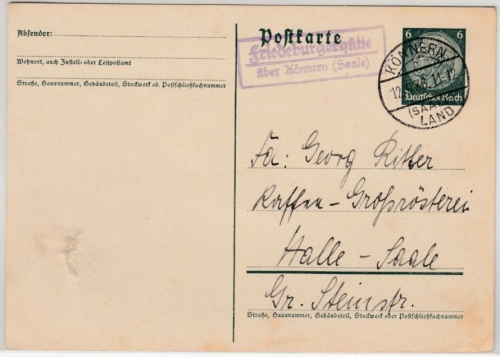 Absender:
Wohnort, auch Zustell- oder Leitpostamt
Straße, Hausnummer, Gebäudeteil, Stockwerk od. Postschließfachnummer
Postkarte
Friedeburgerhütte
über Könnern (Saale)
6 6
Deutsches Reich
KÖNNERN
(SAALE)
LAND
Fa: Georg Ritter
Kaffee-Großrösterei
Halle-Saale
Gr. Steinstr.
Straße, Hausnummer, Gebäudeteil, Stockwerk oder Postschließfachnummer